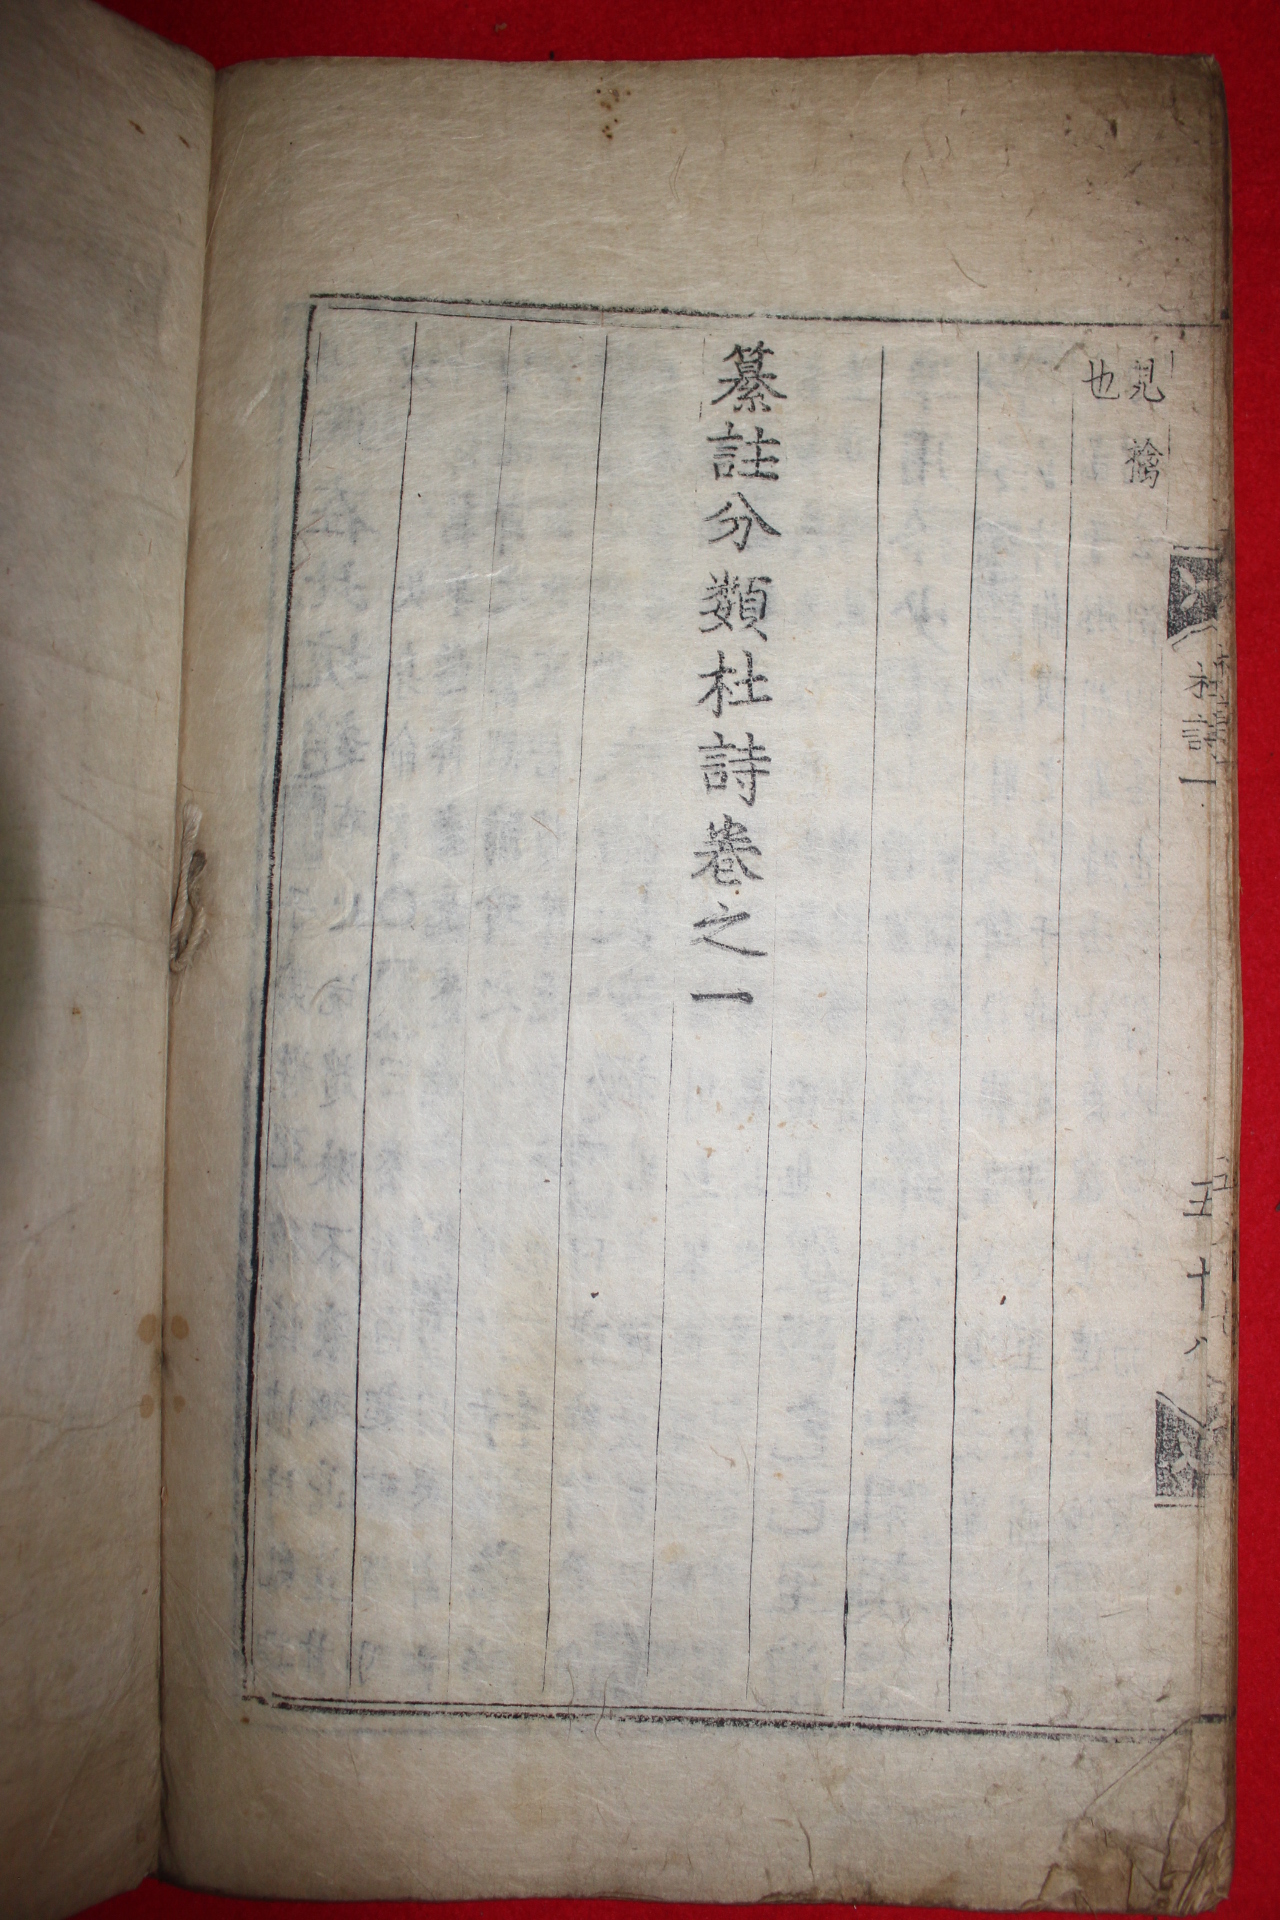 見擒
也
纂註分類杜詩卷之一
杜詩一
五十八